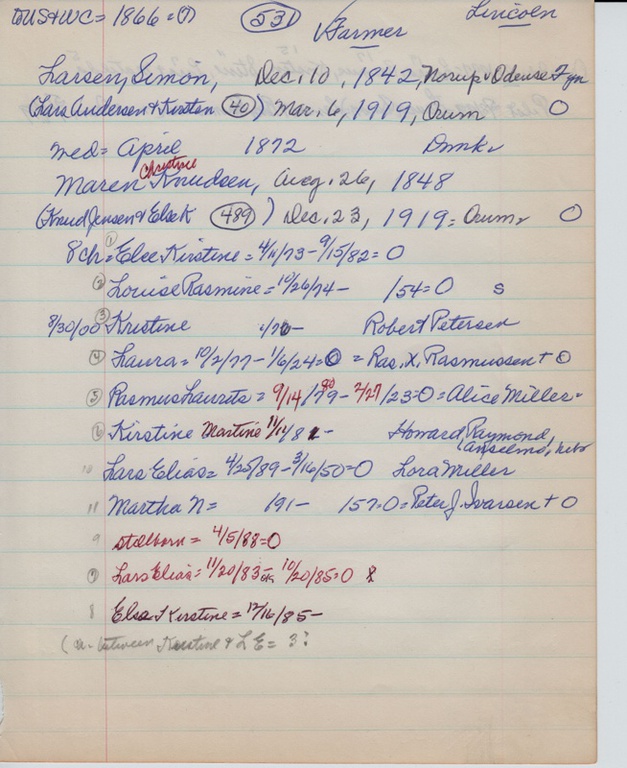 to US & WC = 1866 = (7) (531) Farmer Lincoln
Larsen, Simon, Dec. 10, 1842, Norup v Odense Fyn
(Lars Andersen & Kirsten (40)) Mar. 6, 1919, Orum O
med = April 1872 Dmk
Christine
Maren Knudsen, Aug. 26, 1848
(Knud Jensen & Else K (489)) Dec. 23, 1919 = Orum O
8 ch = (1) Else Kirstine = 4/11/73 - 9/15/82 = O
(2) Louise Rasmine = 10/26/74 - /54 = O s
8/30/00 (3) Kristine /76 - Robert Petersen
(4) Laura = 10/2/77 - 1/6/24 = O = Ras. X. Rasmussen + O
(5) Rasmus Laurets = 9/14/79 80 - 2/27/23 = O = Alice Miller -
(6) Kirstine Martine 11/14/82 - Howard Raymond,
Anselmo, Nebr
10 Lars Elias = 4/25/89 - 3/16/50 = O Lora Miller
11 Martha N = 191 - 157 = O = Peter J. Ivarsen + O
9 stillborn = 4/5/88 = O
(7) Lars Elias = 11/20/83 - 10/20/85 = O
8 Elsa Kirstine = 12/16/85 -
( between Kirstine & L E = 3 ?